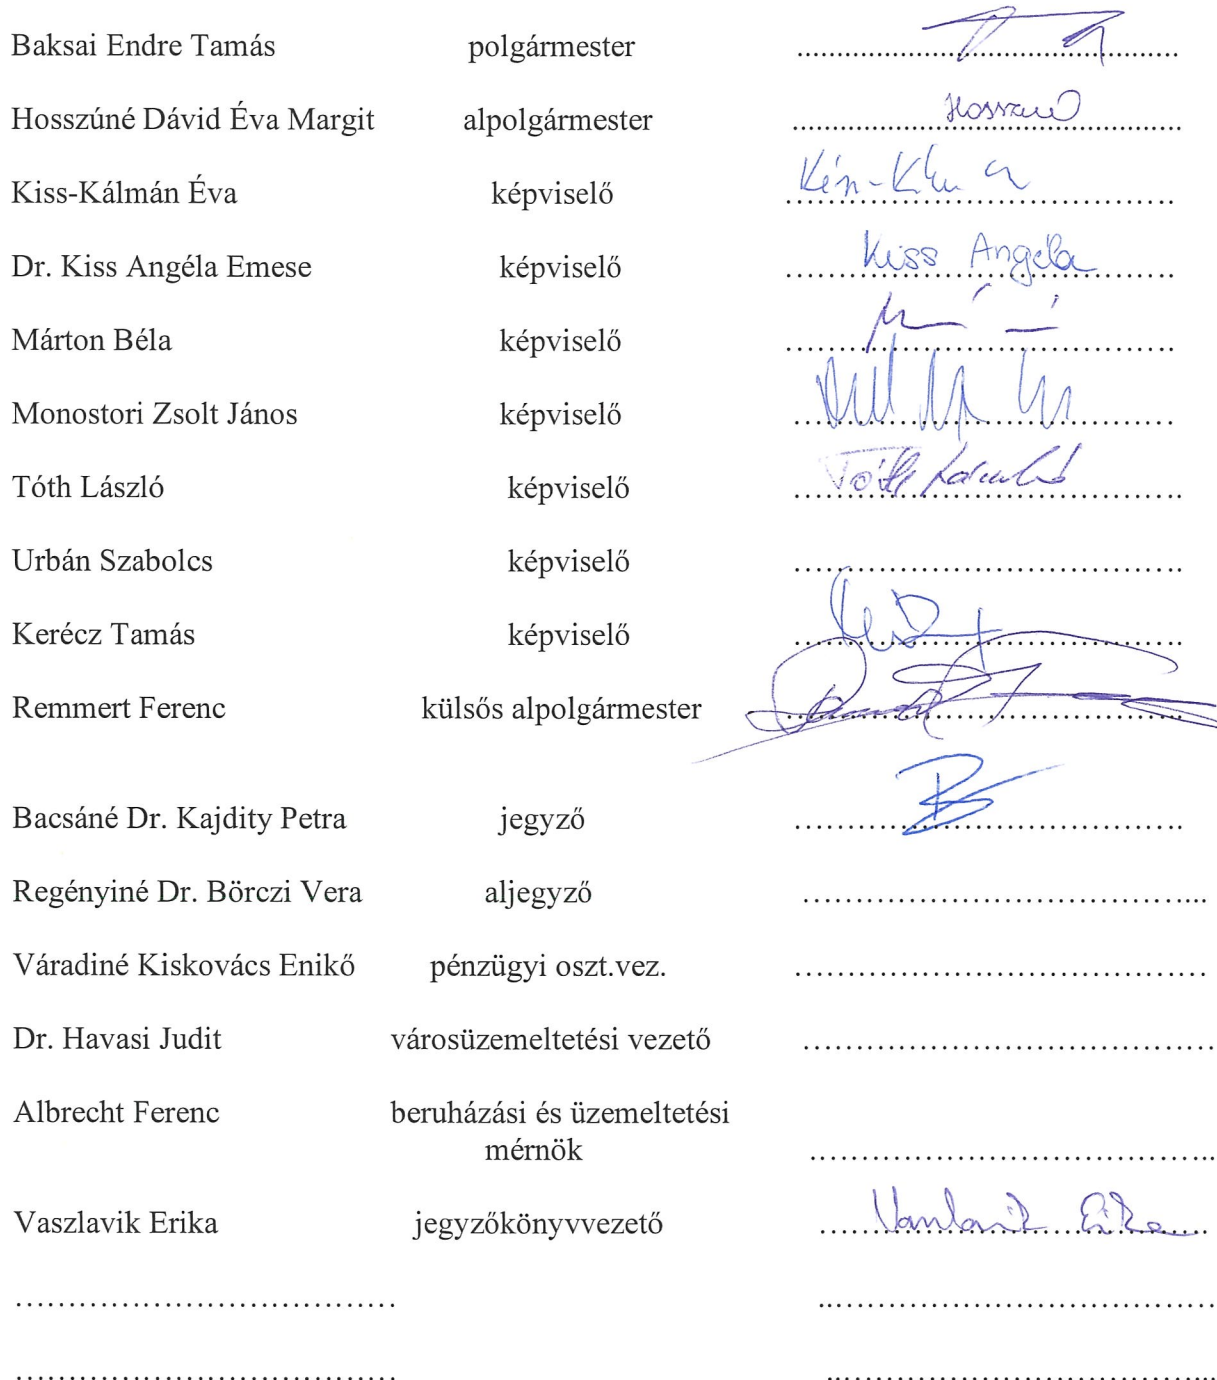 Baksai Endre Tamás polgármester ..........
Hosszúné Dávid Éva Margit alpolgármester .......... Hosszúné
Kiss-Kálmán Éva képviselő ..........
Dr. Kiss Angéla Emese képviselő .......... Kiss Angéla
Márton Béla képviselő ..........
Monostori Zsolt János képviselő ..........
Tóth László képviselő .......... Tóth László
Urbán Szabolcs képviselő ..........
Kerécz Tamás képviselő ..........
Remmert Ferenc külsős alpolgármester ..........
Bacsáné Dr. Kajdity Petra jegyző ..........
Regényiné Dr. Börczi Vera aljegyző ..........
Váradiné Kiskovács Enikő pénzügyi oszt.vez. ..........
Dr. Havasi Judit városüzemeltetési vezető ..........
Albrecht Ferenc beruházási és üzemeltetési
mérnök ..........
Vaszlavik Erika jegyzőkönyvvezető .......... Vaszlavik Erika
.......... ..........
.......... ..........